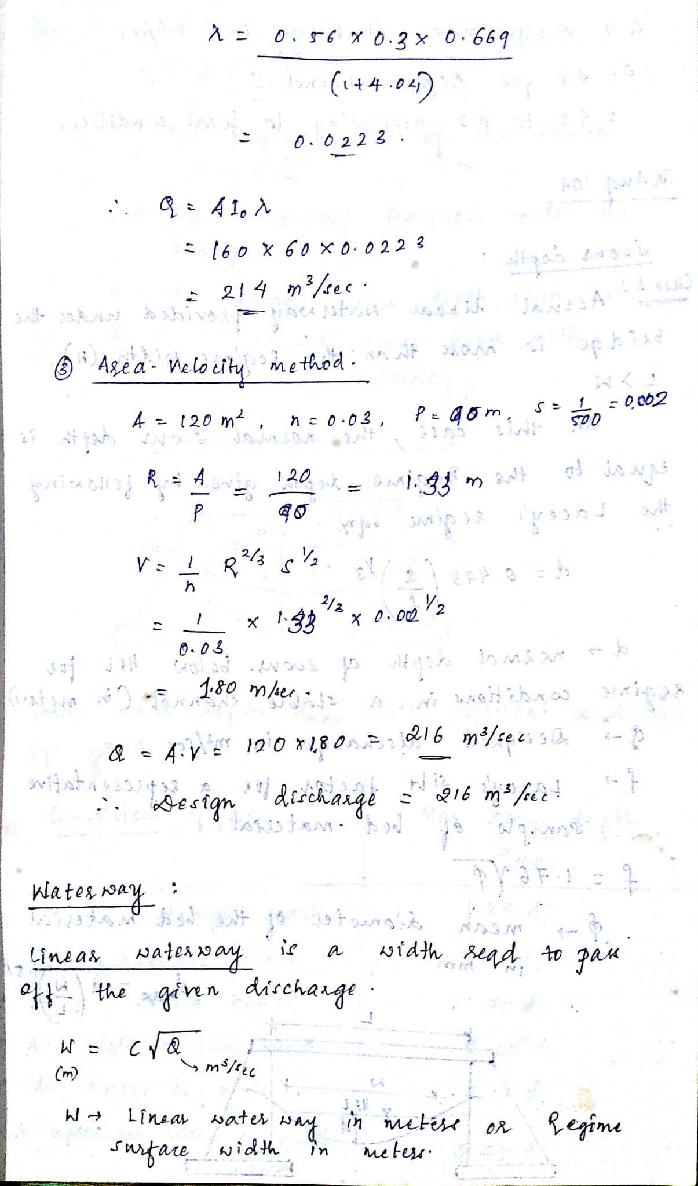 λ = 0.56 × 0.3 × 0.669
(1+4.04)
= 0.0223.
∴ Q = A I₀ λ
= 160 × 60 × 0.0223
= 214 m³/sec.
③ Area-Velocity method.
A = 120 m², n = 0.03, P = 90 m, S = 1/500 = 0.002
R = A/P = 120/90 = 1.33 m
V = 1/n R^2/3 S^1/2
= 1/0.03 × 1.33^2/3 × 0.002^1/2
= 1.80 m/sec.
Q = A.V = 120 × 1.80 = 216 m³/sec
∴ Design discharge = 216 m³/sec.
Waterway :
Linear waterway is a width reqd to pass
off the given discharge.
W = C√Q → m³/sec
(m)
W → Linear water way in meters or Regime
surface width in meters.